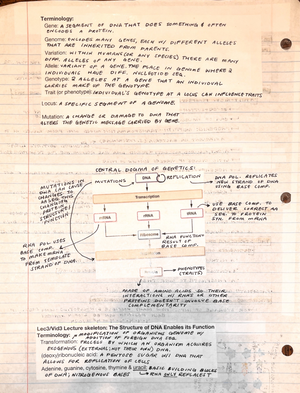 Terminology:
Gene: A SEGMENT OF DNA THAT DOES SOMETHING & OFTEN
ENCODES A PROTEIN.
Genome: ENCODES MANY GENES, EACH W/ DIFFERENT ALLELES
THAT ARE INHERITED FROM PARENTS.
Variation: WITHIN HUMANS (OR ANY SPECIES) THERE ARE MANY
DIFF. ALLELES OF ANY GENE.
Allele: VARIANT OF A GENE. THE PLACE IN GENOME WHERE 2
INDIVIDUALS HAVE DIFF. NUCLEOTIDE SEQ.
Genotype: 2 ALLELES AT A GENE THAT AN INDIVIDUAL
CARRIES MAKE UP THE GENOTYPE
Trait (or phenotype): INDIVIDUAL'S GENOTYPE AT A LOCUS CAN INFLUENCE TRAITS
Locus: A SPECIFIC SEGMENT OF A GENOME.
Mutation: A CHANGE OR DAMAGE TO DNA THAT
ALTERS THE GENETIC MESSAGE CARRIED BY GENE.
CENTRAL DOGMA OF GENETICS:
MUTATIONS
DNA
REPLICATION
DNA POL. REPLICATES
NEW STRAND OF DNA
USING BASE COMP.
MUTATIONS IN
DNA CAN CAUSE
CHANGES TO
STRUCTURE/
FUNCTION.
Transcription
mRNA
rRNA
tRNA
USE BASE COMP. TO
DELIVER CORRECT AA
SEQ. & PROTEIN
SYN. FROM mRNA
RNA FUNCTIONS
RESULT OF
BASE COMP.
RNA POL USES
BASE COMP.
TO MAKE mRNA
FROM TEMPLATE
STRAND OF DNA.
PHENOTYPES
(TRAITS)
MADE OF AMINO ACIDS SO THEIR
INTERACTIONS W/ RNAs OR OTHER
PROTEINS DOESN'T INVOLVE BASE
COMPLEMENTARITY
Lec3/Vid3 Lecture skeleton: The Structure of DNA Enables its Function
Terminology: A MODIFICATION OF ORGANISMS GENOME W/
ADDITION OF FOREIGN DNA SEQ.
Transformation: PROCESS BY WHICH AN ORGANISM ACQUIRES
EXOGENOUS (EXTERNAL; NOT THEIR OWN) DNA.
(deoxy)ribonucleic acid: A PENTOSE SUGAR W/ DNA THAT
ALLOWS FOR REPLICATION OF CELLS
Adenine, guanine, cytosine, thymine & uracil: BASIC BUILDING BLOCKS
OF DNA; NITROGENOUS BASES RNA ONLY REPLACES T